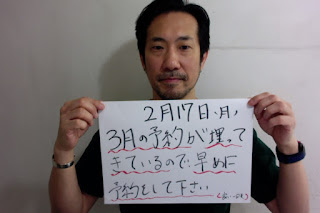 2月17日、月、
3月の予約が埋って
きているので早めに
予約をして下さい